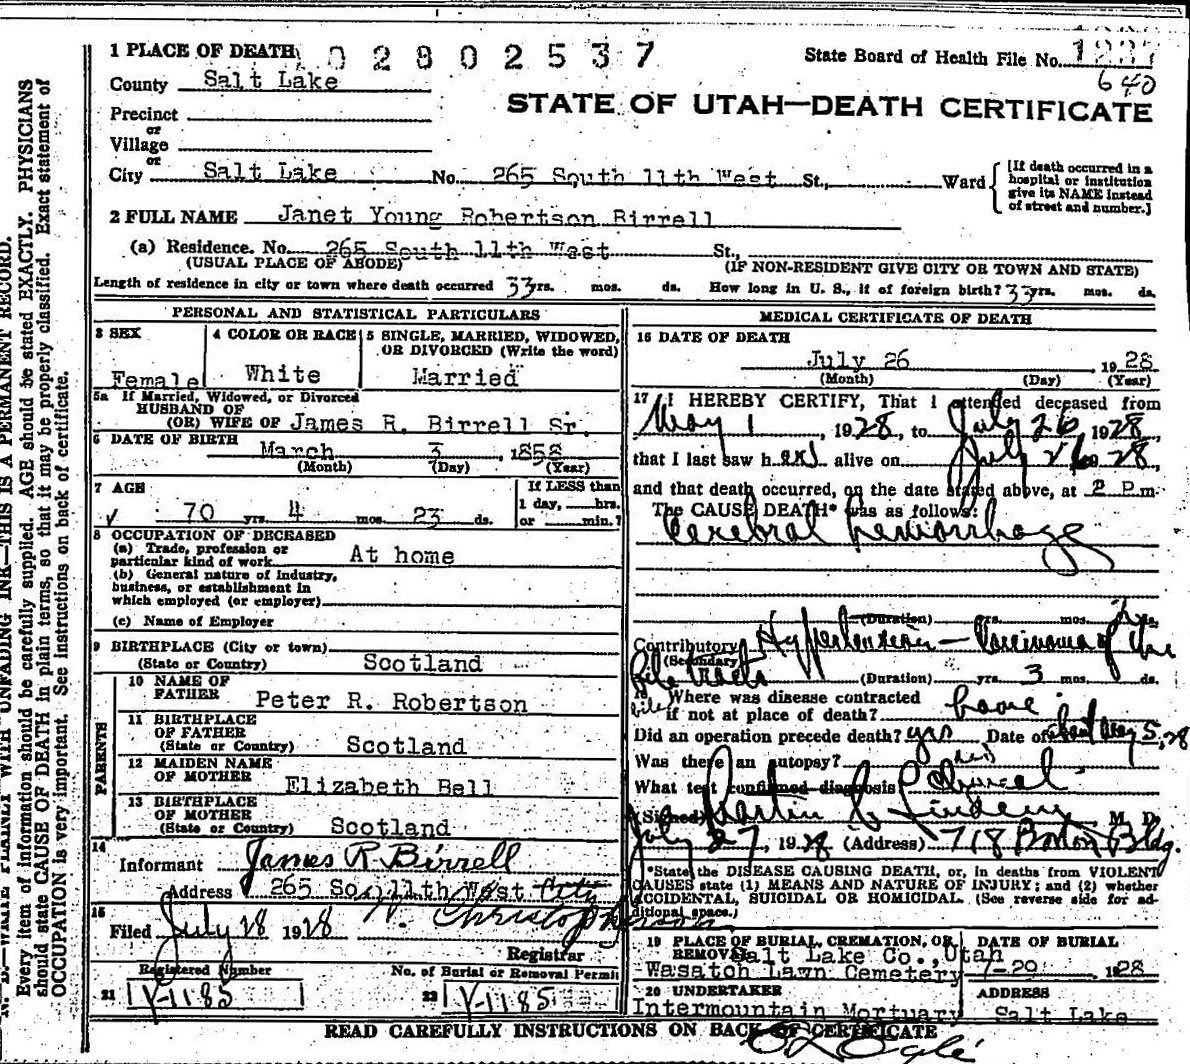 1 PLACE OF DEATH 02802537
State Board of Health File No.
640
County Salt Lake
STATE OF UTAH—DEATH CERTIFICATE
Precinct
or
Village
or
City Salt Lake No. 265 South 11th West St., Ward
[If death occurred in a
hospital or institution
give its NAME instead
of street and number.]
2 FULL NAME Janet Young Robertson Birrell
(a) Residence. No. 265 South 11th West St.,
(USUAL PLACE OF ABODE) (IF NON-RESIDENT GIVE CITY OR TOWN AND STATE)
Length of residence in city or town where death occurred 33 yrs. mos. ds. How long in U. S., if of foreign birth? 33 yrs. mos. ds.
PERSONAL AND STATISTICAL PARTICULARS
3 SEX
Female
4 COLOR OR RACE
White
5 SINGLE, MARRIED, WIDOWED,
OR DIVORCED (Write the word)
Married
5a If Married, Widowed, or Divorced
HUSBAND OF
(OR) WIFE OF James R. Birrell Sr.
6 DATE OF BIRTH
March 3, 1858
(Month) (Day) (Year)
7 AGE
70 yrs. 4 mos. 23 ds.
If LESS than
1 day, hrs.
or min.?
8 OCCUPATION OF DECEASED
(a) Trade, profession or
particular kind of work At home
(b) General nature of industry,
business, or establishment in
which employed (or employer)
(c) Name of Employer
9 BIRTHPLACE (City or town)
(State or Country) Scotland
PARENTS
10 NAME OF
FATHER Peter R. Robertson
11 BIRTHPLACE
OF FATHER
(State or Country) Scotland
12 MAIDEN NAME
OF MOTHER Elizabeth Bell
13 BIRTHPLACE
OF MOTHER
(State or Country) Scotland
14
Informant James R Birrell
Address 265 So. 11th West City
15
Filed July 28 1928
Registrar
Registered Number
21 V-1185
No. of Burial or Removal Permit
22 V-1185
MEDICAL CERTIFICATE OF DEATH
16 DATE OF DEATH
July 26 1928
(Month) (Day) (Year)
17 I HEREBY CERTIFY, That I attended deceased from
May 1, 1928, to July 26 1928
that I last saw her alive on July 26 1928,
and that death occurred, on the date stated above, at 2 P.m.
The CAUSE DEATH* was as follows:
Cerebral hemorrhage
(Duration) yrs. mos. ds.
Contributory Hypertension — Carcinoma of the
(Secondary)
bile tracts (Duration) yrs. 3 mos. ds.
18 Where was disease contracted
if not at place of death? home
Did an operation precede death? yes Date of May 5, 28
Was there an autopsy?
What test confirmed diagnosis? Clinical
(Signed) Martin C Lindem M. D.
July 27, 1928 (Address) 718 Boston Bldg.
*State the DISEASE CAUSING DEATH, or, in deaths from VIOLENT
CAUSES state (1) MEANS AND NATURE OF INJURY; and (2) whether
ACCIDENTAL, SUICIDAL OR HOMICIDAL. (See reverse side for ad-
ditional space.)
19 PLACE OF BURIAL, CREMATION, OR
REMOVAL Salt Lake Co., Utah
Wasatch Lawn Cemetery
DATE OF BURIAL
1928
20 UNDERTAKER
Intermountain Mortuary
ADDRESS
Salt Lake
READ CAREFULLY INSTRUCTIONS ON BACK OF CERTIFICATE
N. B.—WRITE PLAINLY WITH UNFADING INK—THIS IS A PERMANENT RECORD.
Every item of information should be carefully supplied. AGE should be stated EXACTLY. PHYSICIANS
should state CAUSE OF DEATH in plain terms, so that it may be properly classified. Exact statement of
OCCUPATION is very important. See instructions on back of certificate.